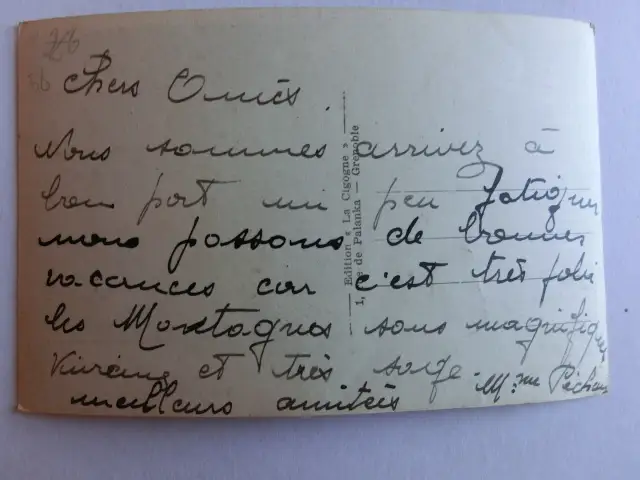 26
36
Chers Amiés.
Nous sommes arrivez à
bon port un peu fatigué
nous passons de bonnes
vacances car c'est très jolie
les Montagnes sons magnifique
et très sage. Mme
meilleurs amitiés
Edition « La Cigogne »
1, de Palanka — Grenoble